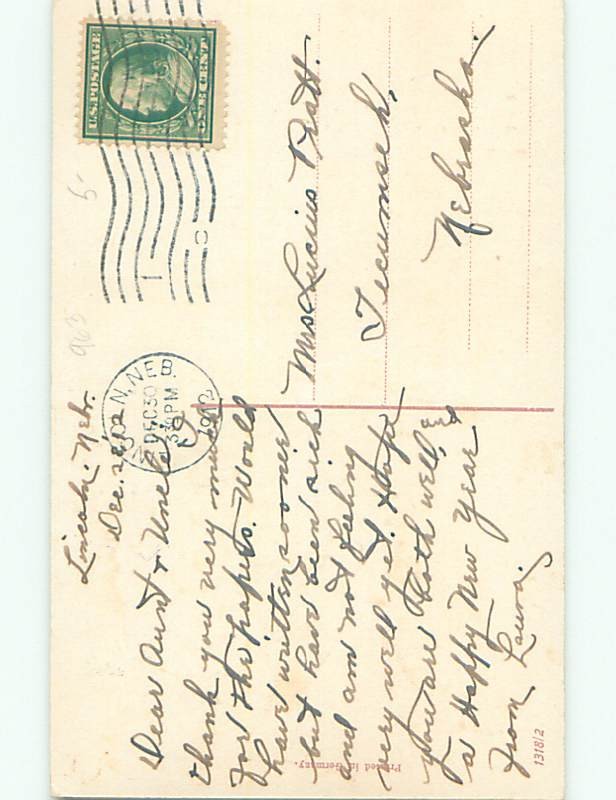 Lincoln, Nebr.
Dear Aunt & Uncle,
thank you very much
for the papers. Would
have written sooner
but have been sick
and am not feeling
very well yet. Hope
you are both well, &
a Happy New Year
from Laura.
Mrs Lucius Pratt.
Tecumseh,
Nebraska.
U.S. POSTAGE
ONE CENT
N, NEB.
DEC 30
330 PM
1912
5-
963
Printed in Germany.
1318/2